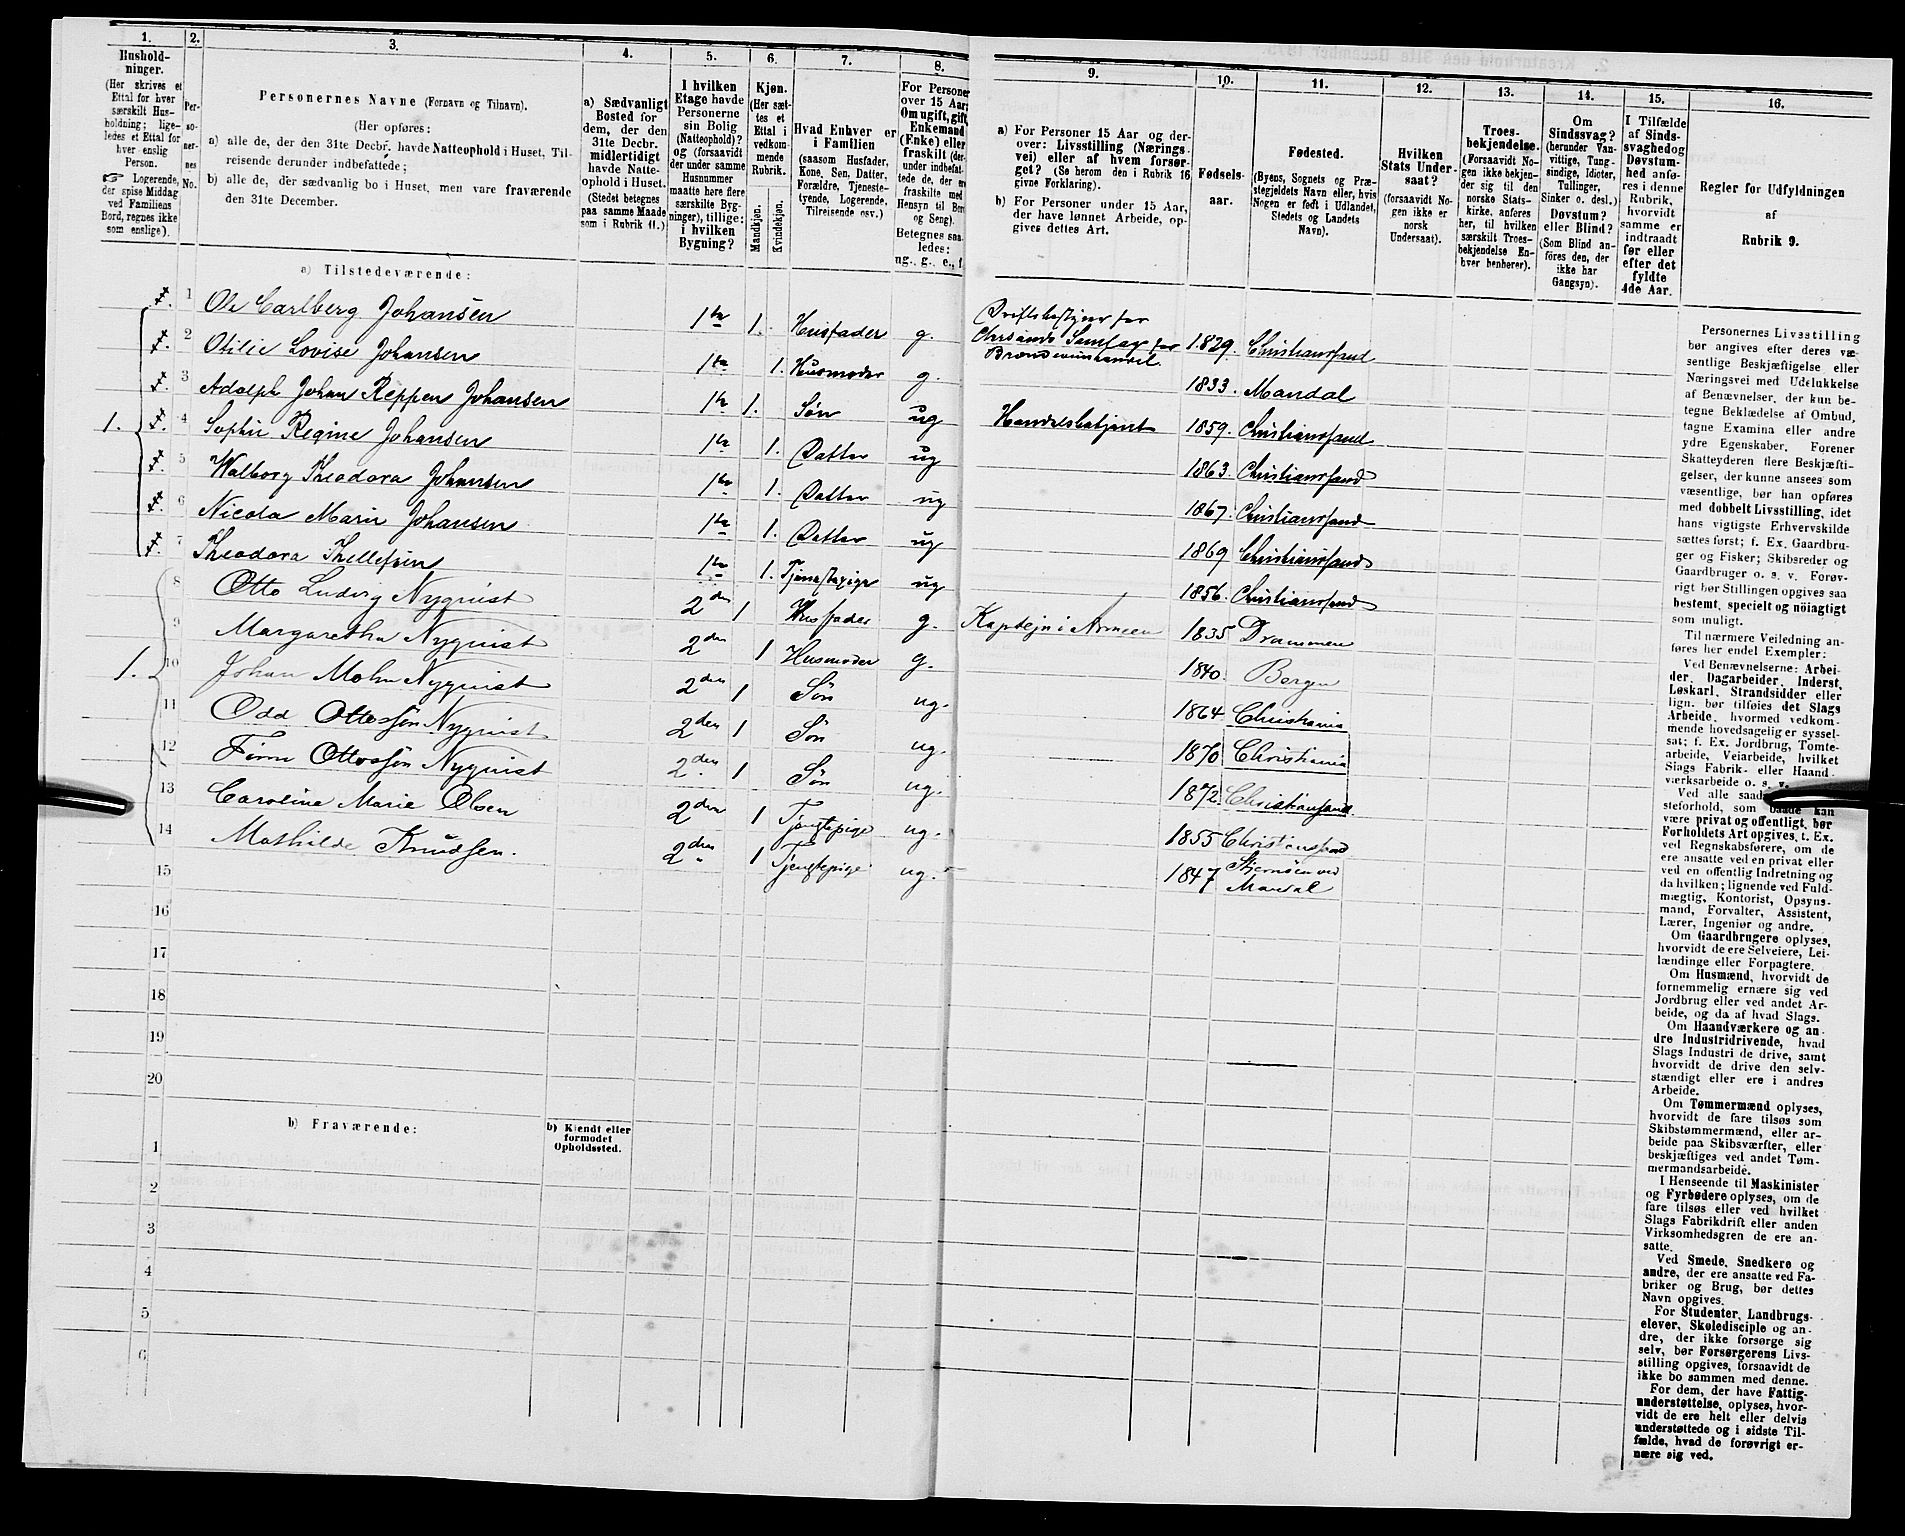 1. 2. 3. 4. 5. 6. 7. 8. 9. 10. 11. 12. 13. 14. 15. 16.
Hushold-
ninger.
(Her skrives et
Ettal for hver
særskilt Hus-
holdning; lige-
ledes et Ettal for
hver enslig
Person.
☞ Logerende,
der spise Middag
ved Familiens
Bord, regnes ikke
som enslige).
Per-
so-
ner-
nes
No.
Personernes Navne (Fornavn og Tilnavn).
(Her opføres:
a) alle de, der den 31te Decbr. havde Natteophold i Huset, Til-
reisende derunder indbefattede;
b) alle de, der sædvanlig bo i Huset, men vare fraværende
den 31te December.
a) Sædvanligt
Bosted for
dem, der den
31te Decbr.
midlertidigt
havde Natte-
ophold i Huset.
(Stedet betegnes
paa samme Maade
som i Rubrik 11.)
I hvilken
Etage havde
Personerne
sin Bolig
(Natteophold)?
og (forsaavidt
der under samme
Husnummer
maatte høre flere
særskilte Byg-
ninger), tillige:
i hvilken
Bygning?
Kjøn.
(Her sæt-
tes et
Ettal i
vedkom-
mende
Rubrik.
Mandkjøn.
Kvindekjøn.
Hvad Enhver er
i Familien
(saasom Husfader,
Kone, Søn, Datter,
Forældre, Tjeneste-
tyende, Logerende,
Tilreisende osv.)
For Personer
over 15 Aar:
Om ugift, gift,
Enkemand
(Enke) eller
fraskilt (der-
under indbefat-
tede de, der ere
fraskilte med
Hensyn til Bord
og Seng).
Betegnes saa-
ledes:
ug., g., e., f.
a) For Personer 15 Aar og der-
over: Livsstilling (Nærings-
vei) eller af hvem forsør-
get? (Se herom den i Rubrik 16
givne Forklaring).
b) For Personer under 15 Aar,
der have lønnet Arbeide, op-
gives dettes Art.
Fødsels-
aar.
Fødested.
(Byens, Sognets og Præ-
stegjeldets Navn eller, hvis
Nogen er født i Udlandet,
Stedets og Landets
Navn).
Hvilken
Stats Under-
saat?
(forsaavidt No-
gen ikke er
norsk
Undersaat).
Troes-
bekjendelse.
(Forsaavidt No-
gen ikke bekjen-
der sig til den
norske Stats-
kirke, anføres
her, til hvilken
særskilt Troes-
bekjendelse En-
hver henhører).
Om
Sindssvag?
(herunder Van-
vittige, Tung-
sindige, Idioter,
Tullinger,
Sinker o. desl.)
Døvstum?
eller Blind?
(Som Blind an-
føres den, der
ikke har
Gangsyn).
I Tilfælde
af Sinds-
svaghed og
Døvstum-
hed anfø-
res i denne
Rubrik,
hvorvidt
samme er
indtraadt
før eller
efter det
fyldte
4de Aar.
Regler for Udfyldningen
af
Rubrik 9.
a) Tilstedeværende:
1 Ole Carlberg Johansen 1ste 1. Husfader g. Driftsbestyrer for Chrsands Samlag for Brændeviinshandel 1829. Christianssand
2 Otilie Lovise Johansen 1ste 1. Husmoder g. 1833. Mandal
3 Adolph Johan Reppen Johansen 1ste 1. Søn ug Handelsbetjent 1859. Christianssand
1. 4 Sophie Regine Johansen 1ste 1. Datter ug 1863. Christianssand
5 Walborg Theodora Johansen 1ste 1. Datter ug 1867. Christianssand
6 Nicola Marie Johansen 1ste 1. Datter ug 1869 Christianssand
7 Theodora Thellefsen 1ste 1. Tjenestepige ug 1856. Christianssand
8 Otto Ludvig Nyqvist 2den 1 Husfader g. Kaptejn i Armeen 1835 Drammen
9 Margaretha Nyqvist 2den 1 Husmoder g. 1840. Bergen
1. 10 Johan Mohn Nyqvist 2den 1 Søn ug. 1864 Christiania
11 Odd Ottossøn Nyqvist 2den 1 Søn ug. 1870 Christiania
12 Finn Ottossøn Nyqvist 2den 1 Søn ug. 1872 Christianssand
13 Caroline Marie Olsen 2den 1 Tjenstepige ug. 1855 Christianssand
14 Mathilde Knudsen. 2den 1 Tjenstepige ug. 1847 ved Mandal
15
16
17
18
19
20
b) Fraværende:
b) Kjendt eller
formodet
Opholdssted.
1
2
3
4
5
6
Personernes Livsstilling
bør angives efter deres væ-
sentlige Beskjæftigelse eller
Næringsvei med Udelukkelse
af Benævnelser, der kun be-
tegne Beklædelse af Ombud,
tagne Examina eller andre
ydre Egenskaber. Forener
Skatteyderen flere Beskjæfti-
gelser, der kunne ansees som
væsentlige, bør han opføres
med dobbelt Livsstilling, idet
hans vigtigste Erhvervskilde
sættes først; f. Ex. Gaardbru-
ger og Fisker; Skibsreder og
Gaardbruger o. s. v. Forøv-
rigt bør Stillingen opgives saa
bestemt, specielt og nöiagtigt
som muligt.
Til nærmere Veiledning an-
føres her endel Exempler:
Ved Benævnelserne: Arbei-
der, Dagarbeider, Inderst,
Løskarl, Strandsidder eller
lign. bør tilføies det Slags
Arbeide, hvormed vedkom-
mende hovedsagelig er syssel-
sat; f. Ex. Jordbrug, Tomte-
arbeide, Veiarbeide, hvilket
Slags Fabrik- eller Haand-
værksarbeide o. s. v.
Ved alle saadanne
steforhold, som baade kan
være privat og offentligt, bør
Forholdets Art opgives, t. Ex.
ved Regnskabsførere, om de
ere ansatte ved en privat eller
ved en offentlig Indretning og
da hvilken; lignende ved Fuld-
mægtig, Kontorist, Opsyns-
mand, Forvalter, Assistent,
Lærer, Ingeniør og andre.
Om Gaardbrugere oplyses,
hvorvidt de ere Selveiere, Lei-
lændinge eller Forpagtere.
Om Husmænd, hvorvidt de
fornemmelig ernære sig ved
Jordbrug eller ved andet Ar-
beide, og da af hvad Slags.
Om Haandværkere og an-
dre Industridrivende, hvad
Slags Industri de drive, samt
hvorvidt de drive den selv-
stændigt eller ere i andres
Arbeide.
Om Tømmermænd oplyses,
hvorvidt de fare tilsøs som
Skibstømmermænd, eller ar-
beide paa Skibsværfter, eller
beskjæftiges ved andet Tøm-
mermandsarbeide.
I Henseende til Maskinister
og Fyrbødere oplyses, om de
fare tilsøs eller ved hvilket
Slags Fabrikdrift eller anden
Virksomhedsgren de ere an-
satte.
Ved Smede, Snedkere og
andre, der ere ansatte ved Fa-
briker og Brug, bør dettes
Navn opgives.
For Studenter, Landbrugs-
elever, Skoledisciple og an-
dre, der ikke forsørge sig
selv, bør Forsørgerens Livs-
stilling opgives, forsaavidt de
ikke bo sammen med denne.
For dem, der have Fattig-
understøttelse, oplyses, hvor-
vidt de ere helt eller delvis
understøttede og i sidste Til-
fælde, hvad de forøvrigt er-
nære sig ved.